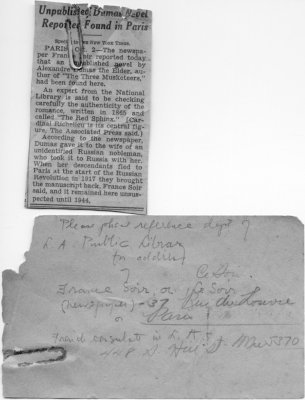 Unpublished Dumas Novel
Reported Found in Paris
Special to the New York Times.
PARIS, Oct. 2—The newspa-
per France Soir reported today
that an unpublished novel by
Alexandre Dumas the Elder, au-
thor of "The Three Musketeers,"
had been found here.
An expert from the National
Library is said to be checking
carefully the authenticity of the
romance, written in 1865 and
called "The Red Sphinx." (Car-
dinal Richelieu is its central fig-
ure, The Associated Press said.)
According to the newspaper,
Dumas gave it to the wife of an
unidentified Russian nobleman,
who took it to Russia with her.
When her descendants fled to
Paris at the start of the Russian
Revolution in 1917 they brought
the manuscript back, France Soir
said, and it remained here unsus-
pected until 1944.
Please phone reference dept of
L.A. Public Library
for address
France Soir, or Ce Soir
(newspaper) - 37 Rue du Louvre
or Paris
French consulate in L.A.
448 S. Hill St.